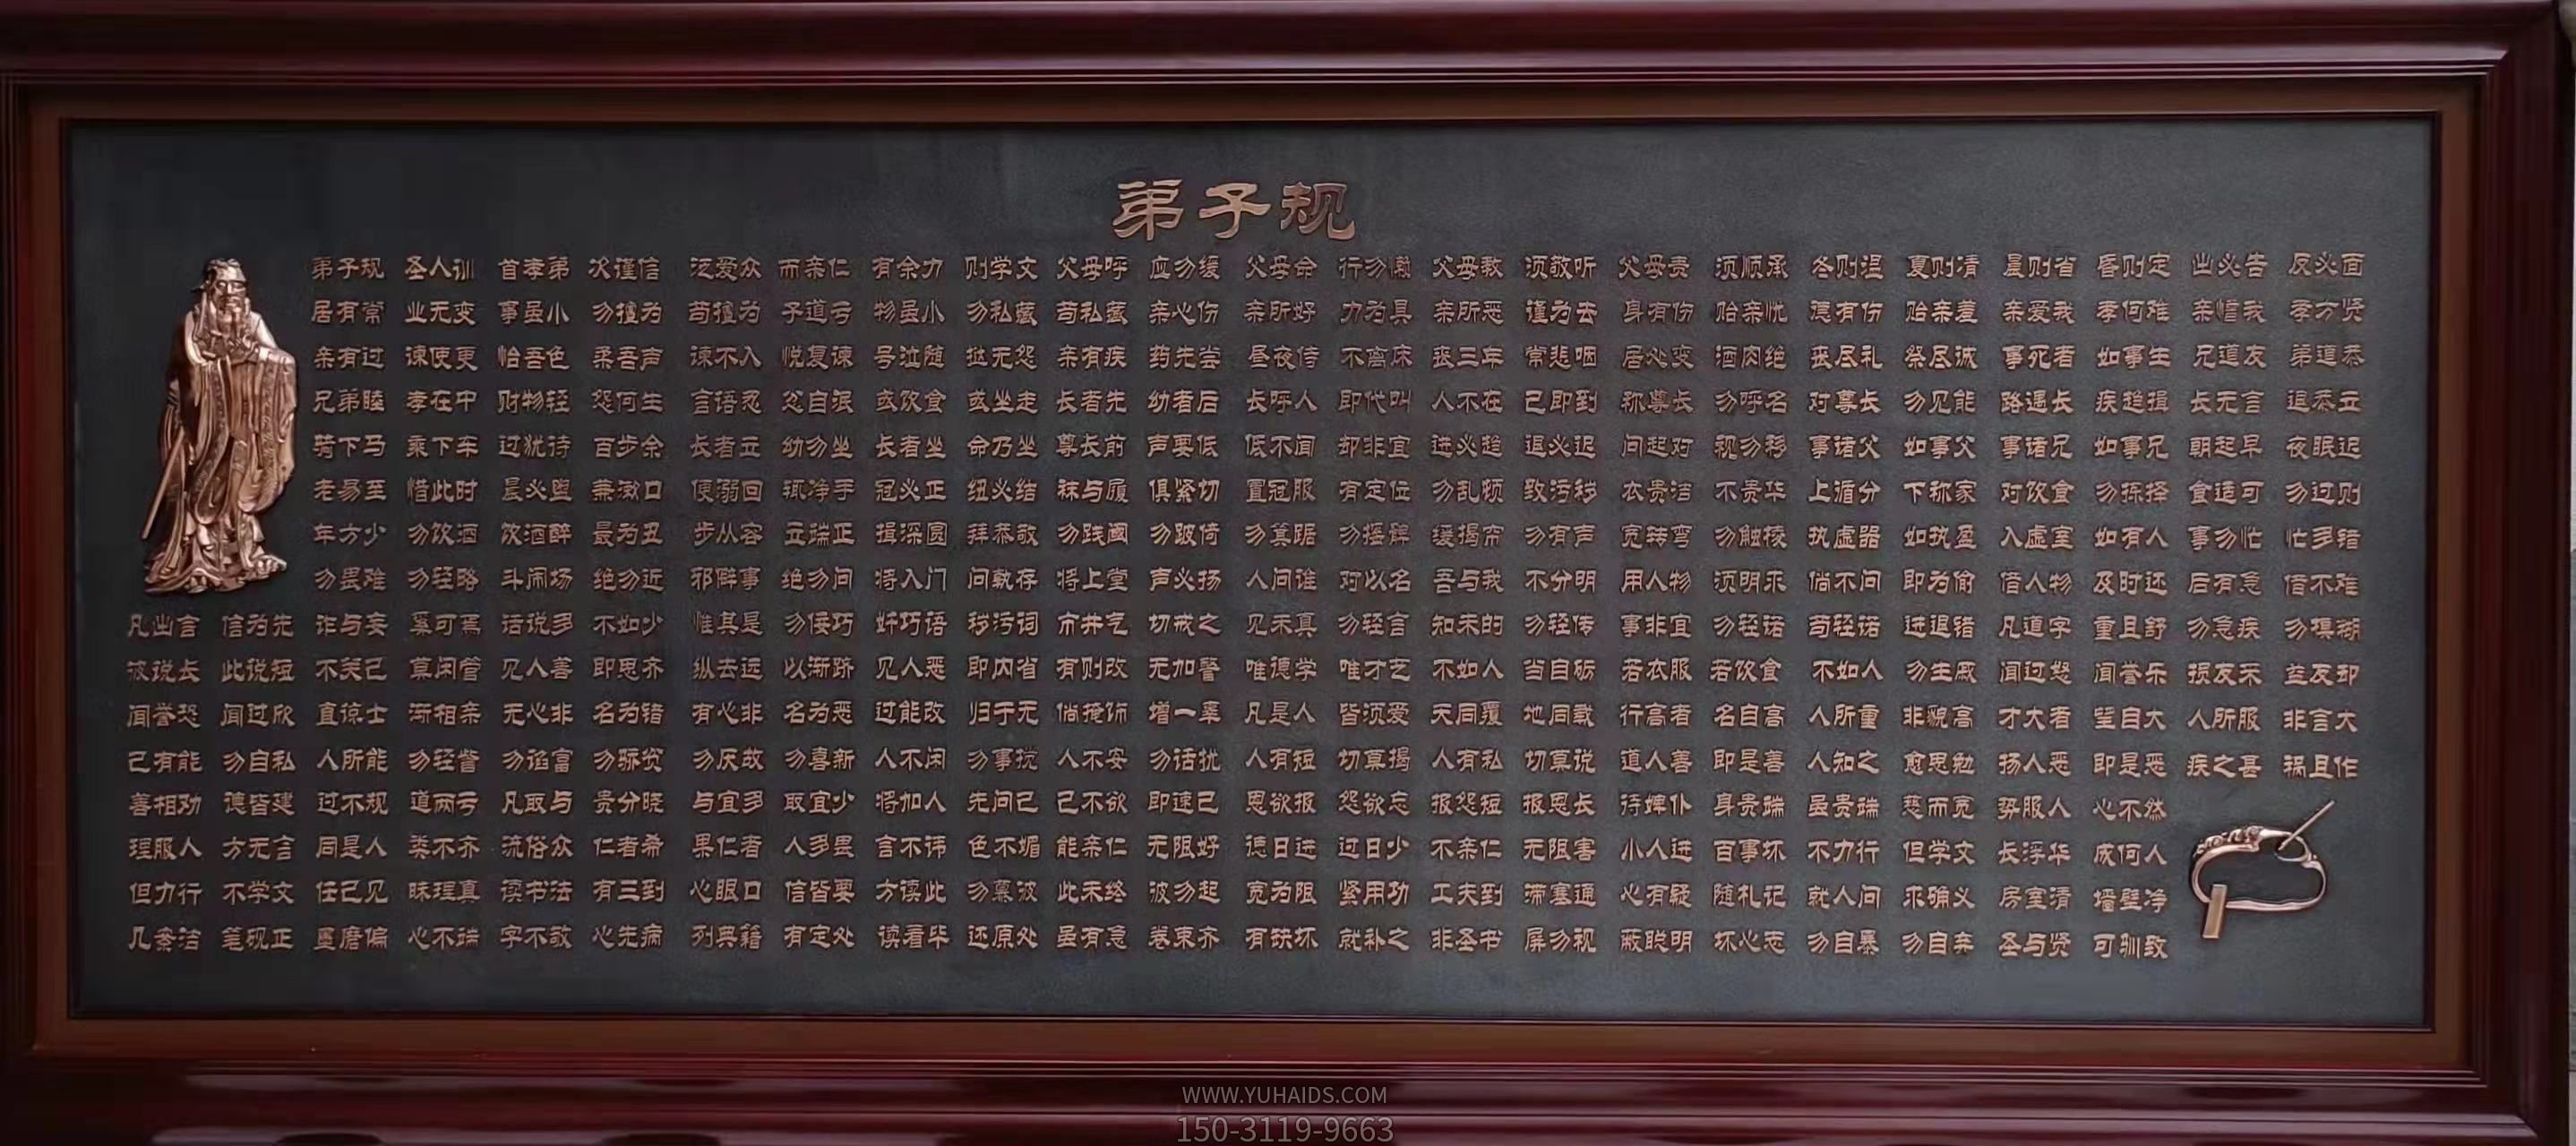 弟子规
弟子规 圣人训 首孝弟 次谨信 泛爱众 而亲仁 有余力 则学文 父母呼 应勿缓 父母命 行勿懒 父母教 须敬听 父母责 须顺承 冬则温 夏则凊 晨则省 昏则定 出必告 反必面
居有常 业无变 事虽小 勿擅为 苟擅为 子道亏 物虽小 勿私藏 苟私藏 亲心伤 亲所好 力为具 亲所恶 谨为去 身有伤 贻亲忧 德有伤 贻亲羞 亲爱我 孝何难 亲憎我 孝方贤
亲有过 谏使更 怡吾色 柔吾声 谏不入 悦复谏 号泣随 挞无怨 亲有疾 药先尝 昼夜侍 不离床 丧三年 常悲咽 居处变 酒肉绝 丧尽礼 祭尽诚 事死者 如事生 兄道友 弟道恭
兄弟睦 孝在中 财物轻 怨何生 言语忍 忿自泯 或饮食 或坐走 长者先 幼者后 长呼人 即代叫 人不在 己即到 称尊长 勿呼名 对尊长 勿见能 路遇长 疾趋揖 长无言 退恭立
骑下马 乘下车 过犹待 百步余 长者立 幼勿坐 长者坐 命乃坐 尊长前 声要低 低不闻 却非宜 进必趋 退必迟 问起对 视勿移 事诸父 如事父 事诸兄 如事兄 朝起早 夜眠迟
老易至 惜此时 晨必盥 兼漱口 便溺回 辄净手 冠必正 纽必结 袜与履 俱紧切 置冠服 有定位 勿乱顿 致污秽 衣贵洁 不贵华 上循分 下称家 对饮食 勿拣择 食适可 勿过则
年方少 勿饮酒 饮酒醉 最为丑 步从容 立端正 揖深圆 拜恭敬 勿践阈 勿跛倚 勿箕踞 勿摇髀 缓揭帘 勿有声 宽转弯 勿触棱 执虚器 如执盈 入虚室 如有人 事勿忙 忙多错
勿畏难 勿轻略 斗闹场 绝勿近 邪僻事 绝勿问 将入门 问孰存 将上堂 声必扬 人问谁 对以名 吾与我 不分明 用人物 须明求 倘不问 即为偷 借人物 及时还 后有急 借不难
凡出言 信为先 诈与妄 奚可焉 话说多 不如少 惟其是 勿佞巧 奸巧语 秽污词 市井气 切戒之 见未真 勿轻言 知未的 勿轻传 事非宜 勿轻诺 苟轻诺 进退错 凡道字 重且舒 勿急疾 勿模糊
彼说长 此说短 不关己 莫闲管 见人善 即思齐 纵去远 以渐跻 见人恶 即内省 有则改 无加警 唯德学 唯才艺 不如人 当自砺 若衣服 若饮食 不如人 勿生戚 闻过怒 闻誉乐 损友来 益友却
闻誉恐 闻过欣 直谅士 渐相亲 无心非 名为错 有心非 名为恶 过能改 归于无 倘掩饰 增一辜 凡是人 皆须爱 天同覆 地同载 行高者 名自高 人所重 非貌高 才大者 望自大 人所服 非言大
己有能 勿自私 人所能 勿轻訾 勿谄富 勿骄贫 勿厌故 勿喜新 人不闲 勿事搅 人不安 勿话扰 人有短 切莫揭 人有私 切莫说 道人善 即是善 人知之 愈思勉 扬人恶 即是恶 疾之甚 祸且作
善相劝 德皆建 过不规 道两亏 凡取与 贵分晓 与宜多 取宜少 将加人 先问己 己不欲 即速已 恩欲报 怨欲忘 报怨短 报恩长 待婢仆 身贵端 虽贵端 慈而宽 势服人 心不然
理服人 方无言 同是人 类不齐 流俗众 仁者希 果仁者 人多畏 言不讳 色不媚 能亲仁 无限好 德日进 过日少 不亲仁 无限害 小人进 百事坏 不力行 但学文 长浮华 成何人
但力行 不学文 任己见 昧理真 读书法 有三到 心眼口 信皆要 方读此 勿慕彼 此未终 彼勿起 宽为限 紧用功 工夫到 滞塞通 心有疑 随札记 就人问 求确义 房室清 墙壁净
几案洁 笔砚正 墨磨偏 心不端 字不敬 心先病 列典籍 有定处 读看毕 还原处 虽有急 卷束齐 有缺坏 就补之 非圣书 屏勿视 蔽聪明 坏心志 勿自暴 勿自弃 圣与贤 可驯致
WWW.YUHAIDS.COM
150-3119-9663